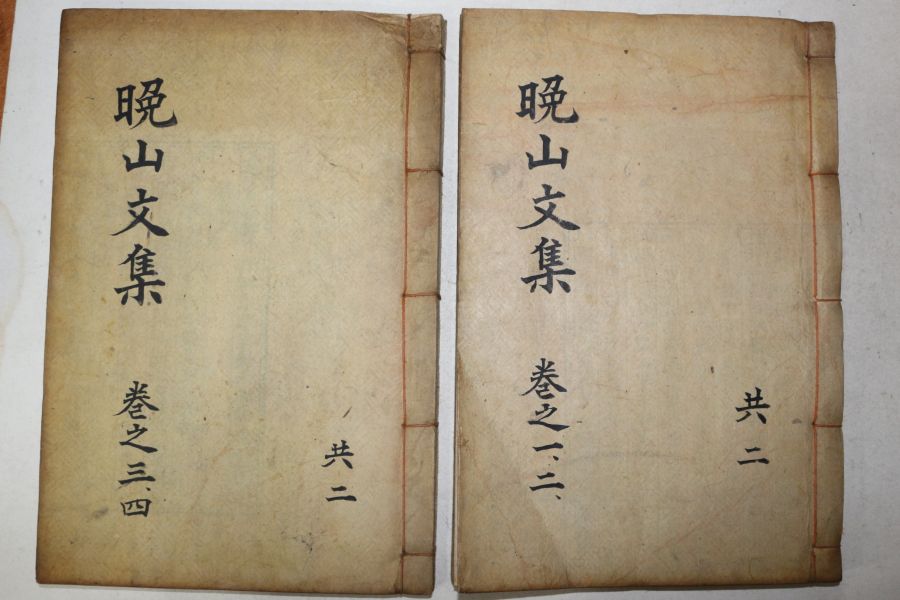 晩山文集
卷之一、二、
共二
晩山文集
卷之三、四
共二